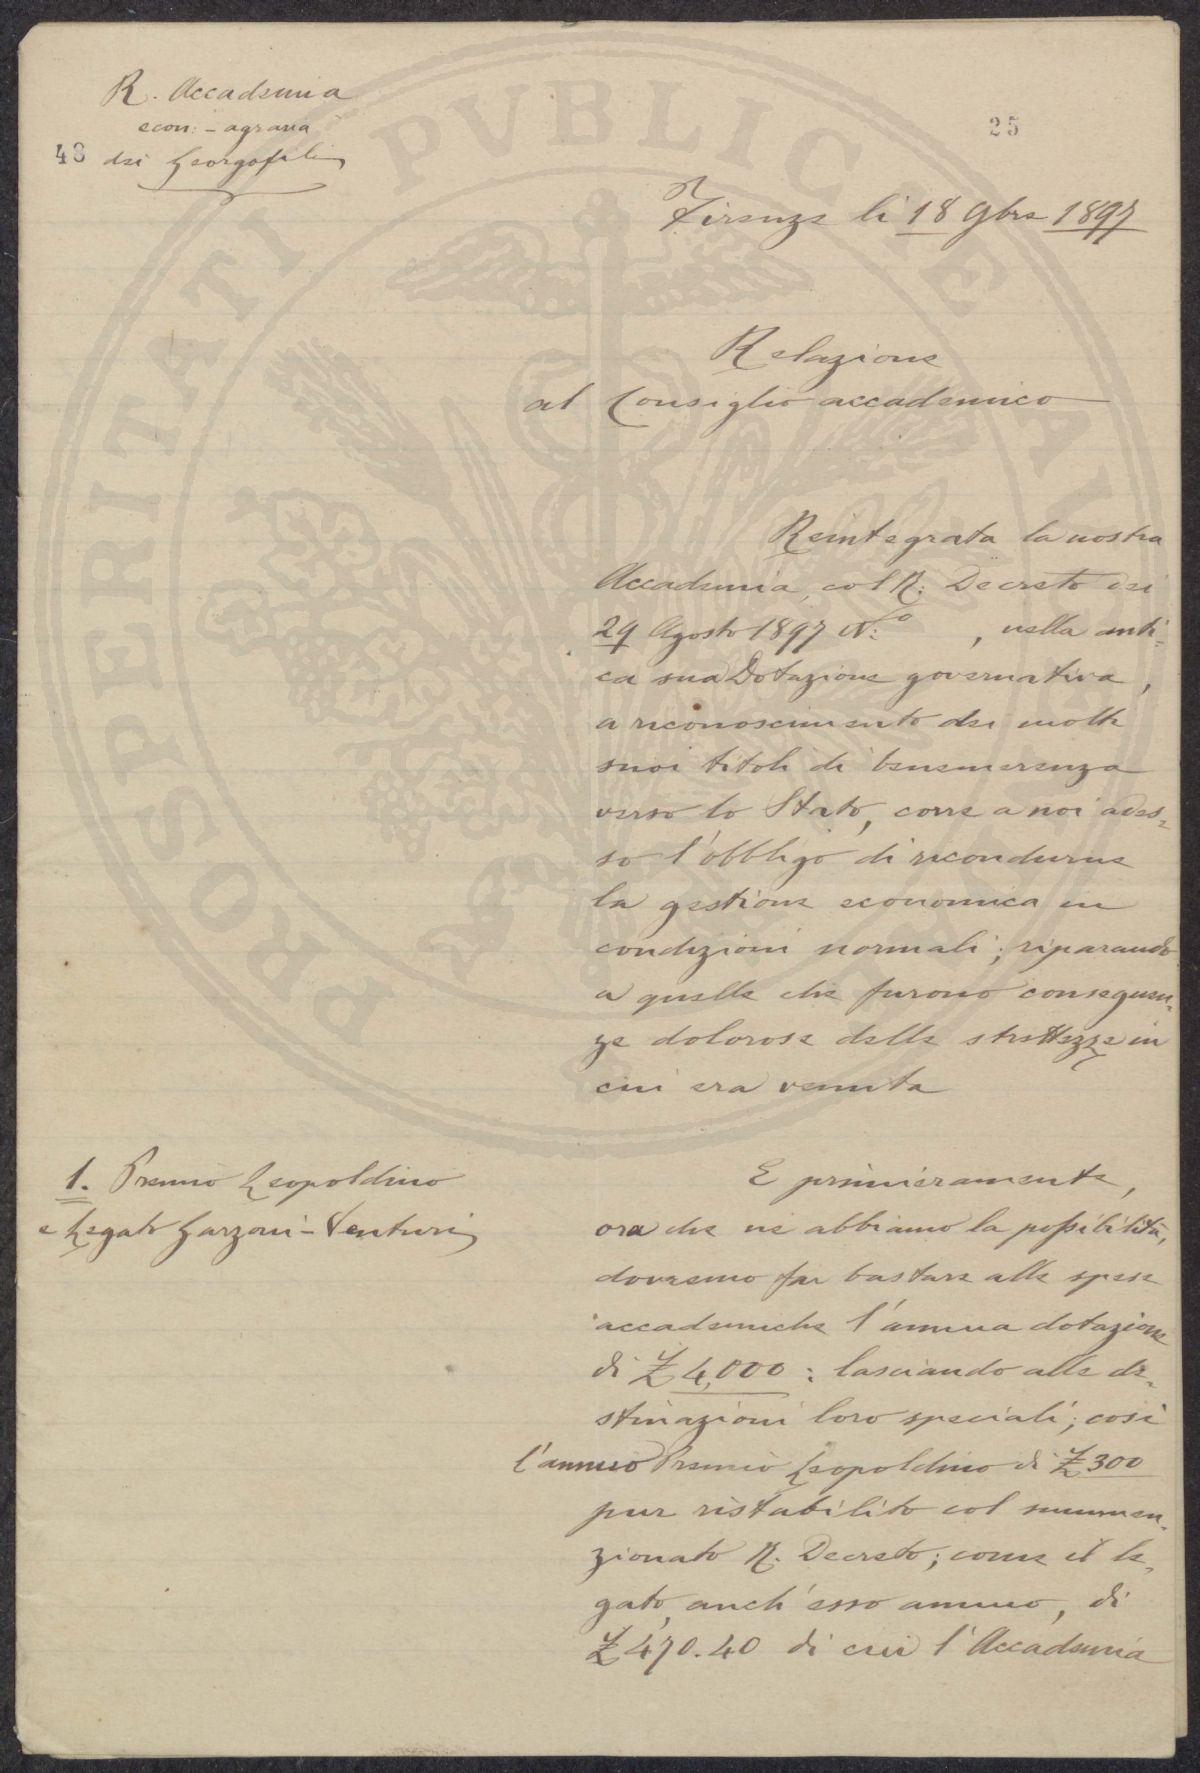 R. Accademia
econ: - agraria
48 dei Georgofili
25
Firenze li 18 9bre 1897
Relazione
al Consiglio accademico
Reintegrata la nostra
Accademia, col R. Decreto dei
29 Agosto 1897 N:o , nella anti-
ca sua Dotazione governativa,
a riconoscimento dei molti
suoi titoli di benemerenza
verso lo Stato, corre a noi ades-
so l'obbligo di ricondurne
la gestione economica in
condizioni normali; riparando
a quelle che furono conseguen-
ze dolorose delle strettezze in
cui era venuta
1. Premio Leopoldino
e Legato Garzoni-Venturi
E primieramente,
ora che ne abbiamo la possibilità,
dovremo far bastare alle spese
accademiche l'annua dotazione
di £ 4,000 : lasciando alle de-
stinazioni loro speciali; così
l'annuo Premio Leopoldino di £ 300
pur ristabilito col summen-
zionato R. Decreto; come il le-
gato, anch'esso annuo, di
£ 470.40 di cui l'Accademia
PROSPERITATI PVBLICAE AVGENDAE